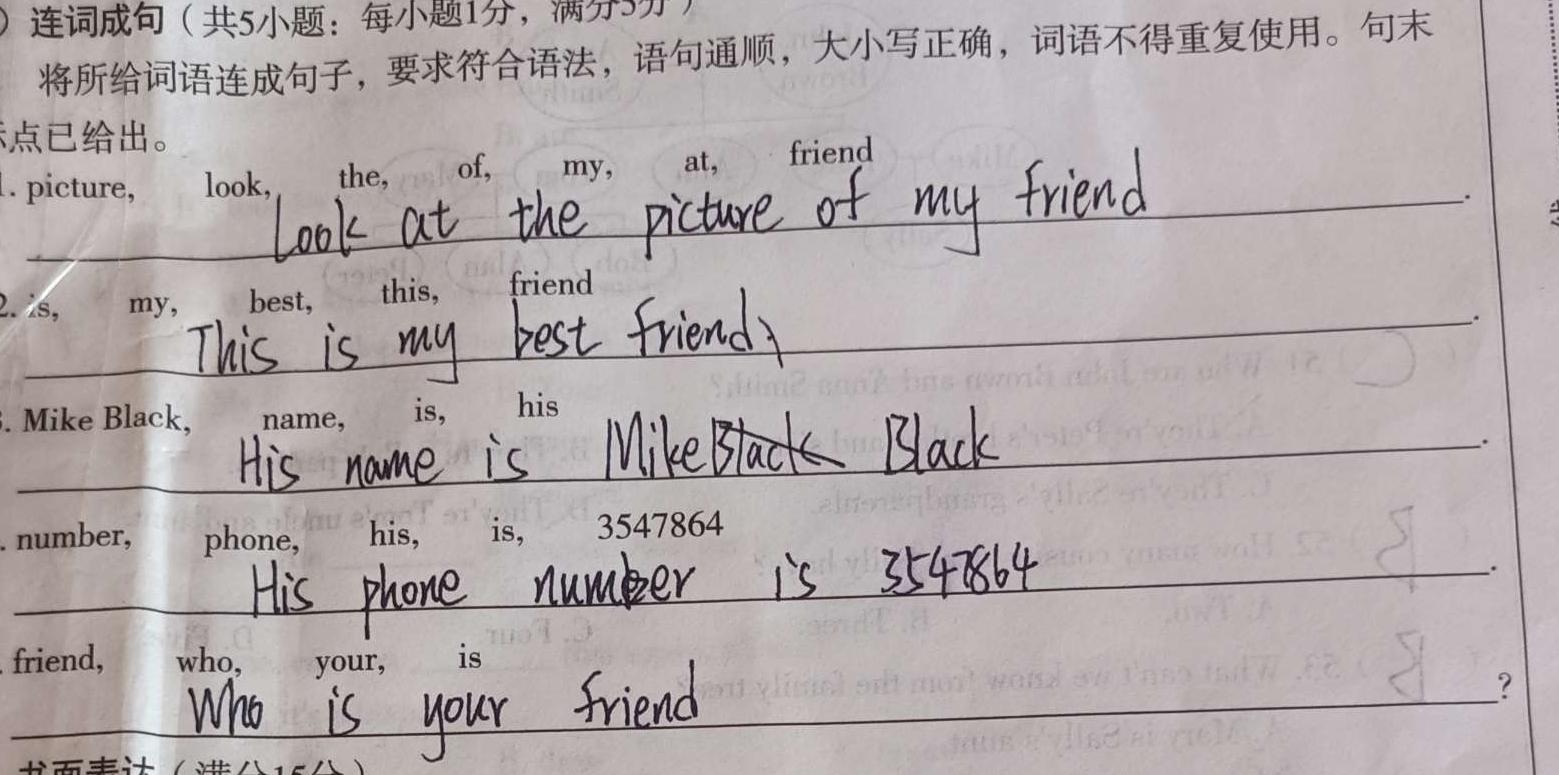 连词成句（共5小题：每小题1分，满分5分）
将所给词语连成句子，要求符合语法，语句通顺，大小写正确，词语不得重复使用。句末
点已给出。
1. picture, look, the, of, my, at, friend
Look at the picture of my friend.
2. is, my, best, this, friend
This is my best friend.
. Mike Black, name, is, his
His name is Mike Black.
. number, phone, his, is, 3547864
His phone number is 3547864.
. friend, who, your, is
Who is your friend?
书面表达（满分15分）